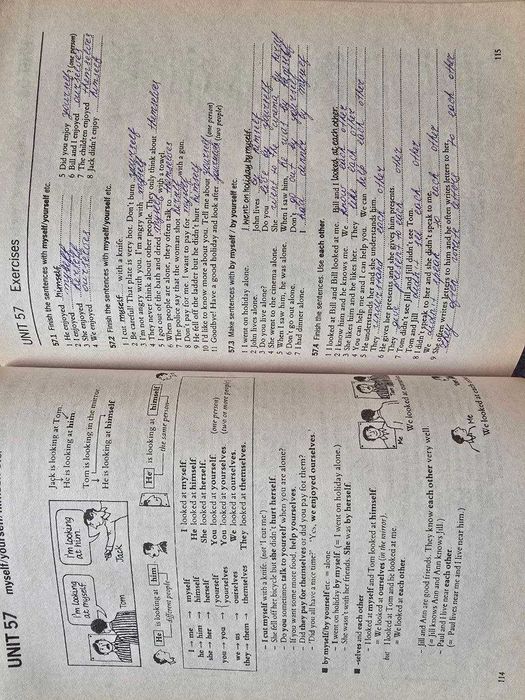 UNIT 57 myself/yourself/
I'm looking at him.
Jack
I'm looking at myself.
Tom
Jack is looking at Tom.
He is looking at him.
Tom is looking in the mirror.
He is looking at himself.
He is looking at him
different people
He is looking at himself
the same person
I → me → myself
he → him → himself
she → her → herself
you → you → yourself
yourselves
we → us → ourselves
they → them → themselves
I looked at myself.
He looked at himself.
She looked at herself.
You looked at yourself. (one person)
You looked at yourselves. (two or more people)
We looked at ourselves.
They looked at themselves.
– I cut myself with a knife. (not I cut me)
– She fell off her bicycle but she didn't hurt herself.
– Do you sometimes talk to yourself when you are alone?
– If you want some more food, help yourselves.
– Did they pay for themselves or did you pay for them?
– 'Did you all have a nice time?' 'Yes, we enjoyed ourselves.'
■ by myself/by yourself etc. = alone
– I went on holiday by myself. (= I went on holiday alone.)
– She wasn't with her friends. She was by herself.
■ -selves and each other
– I looked at myself and Tom looked at himself
= We looked at ourselves (in the mirror).
but I looked at Tom and he looked at me.
= We looked at each other.
– Jill and Ann are good friends. They know each other very well.
(= Jill knows Ann and Ann knows Jill.)
– Paul and I live near each other.
(= Paul lives near me and I live near him.)
Tom
Me
We looked at ourselves
Me
We looked at each
114
UNIT 57 Exercises
57.1 Finish the sentences with myself/yourself etc.
1 He enjoyed himself.
2 I enjoyed
3 She enjoyed herself
4 We enjoyed ourselves
5 Did you enjoy yourself (one person)
6 Bill and I enjoyed ourselves
7 The children enjoyed themselves
8 Jack didn't enjoy himself
57.2 Finish the sentences with myself/yourself etc.
1 I cut myself with a knife.
2 Be careful! That plate is very hot. Don't burn yourself
3 I'm not angry with you. I'm angry with myself
4 They never think about other people. They only think about themselves
5 I got out of the bath and dried myself with a towel.
6 When people are alone, they often talk to themselves
7 The police say that the woman shot herself with a gun.
8 Don't pay for me. I want to pay for myself
9 He fell off the ladder but he didn't hurt himself
10 I'd like to know more about you. Tell me about yourself (one person)
11 Goodbye! Have a good holiday and look after yourselves (two people)
57.3 Make sentences with by myself / by yourself etc.
1 I went on holiday alone. I went on holiday by myself.
2 John lives alone. John lives by himself
3 Do you live alone? Do you live by yourself
4 She went to the cinema alone. She went to the cinema by herself
5 When I saw him, he was alone. When I saw him, he was by himself
6 Don't go out alone. Don't go out by yourself
7 I had dinner alone. I had dinner by myself
57.4 Finish the sentences. Use each other.
1 I looked at Bill and Bill looked at me. Bill and I looked at each other.
2 I know him and he knows me. We know each other
3 She likes him and he likes her. They like each other
4 You can help me and I can help you. We can help each other
5 He understands her and she understands him.
They understand each other
6 He gives her presents and she gives him presents.
They give presents to each other
7 Tom didn't see Jill and Jill didn't see Tom.
Tom and Jill didn't see each other
8 I didn't speak to her and she didn't speak to me.
We didn't speak to each other
9 She often writes letters to him and he often writes letters to her.
They often write letters to each other
115